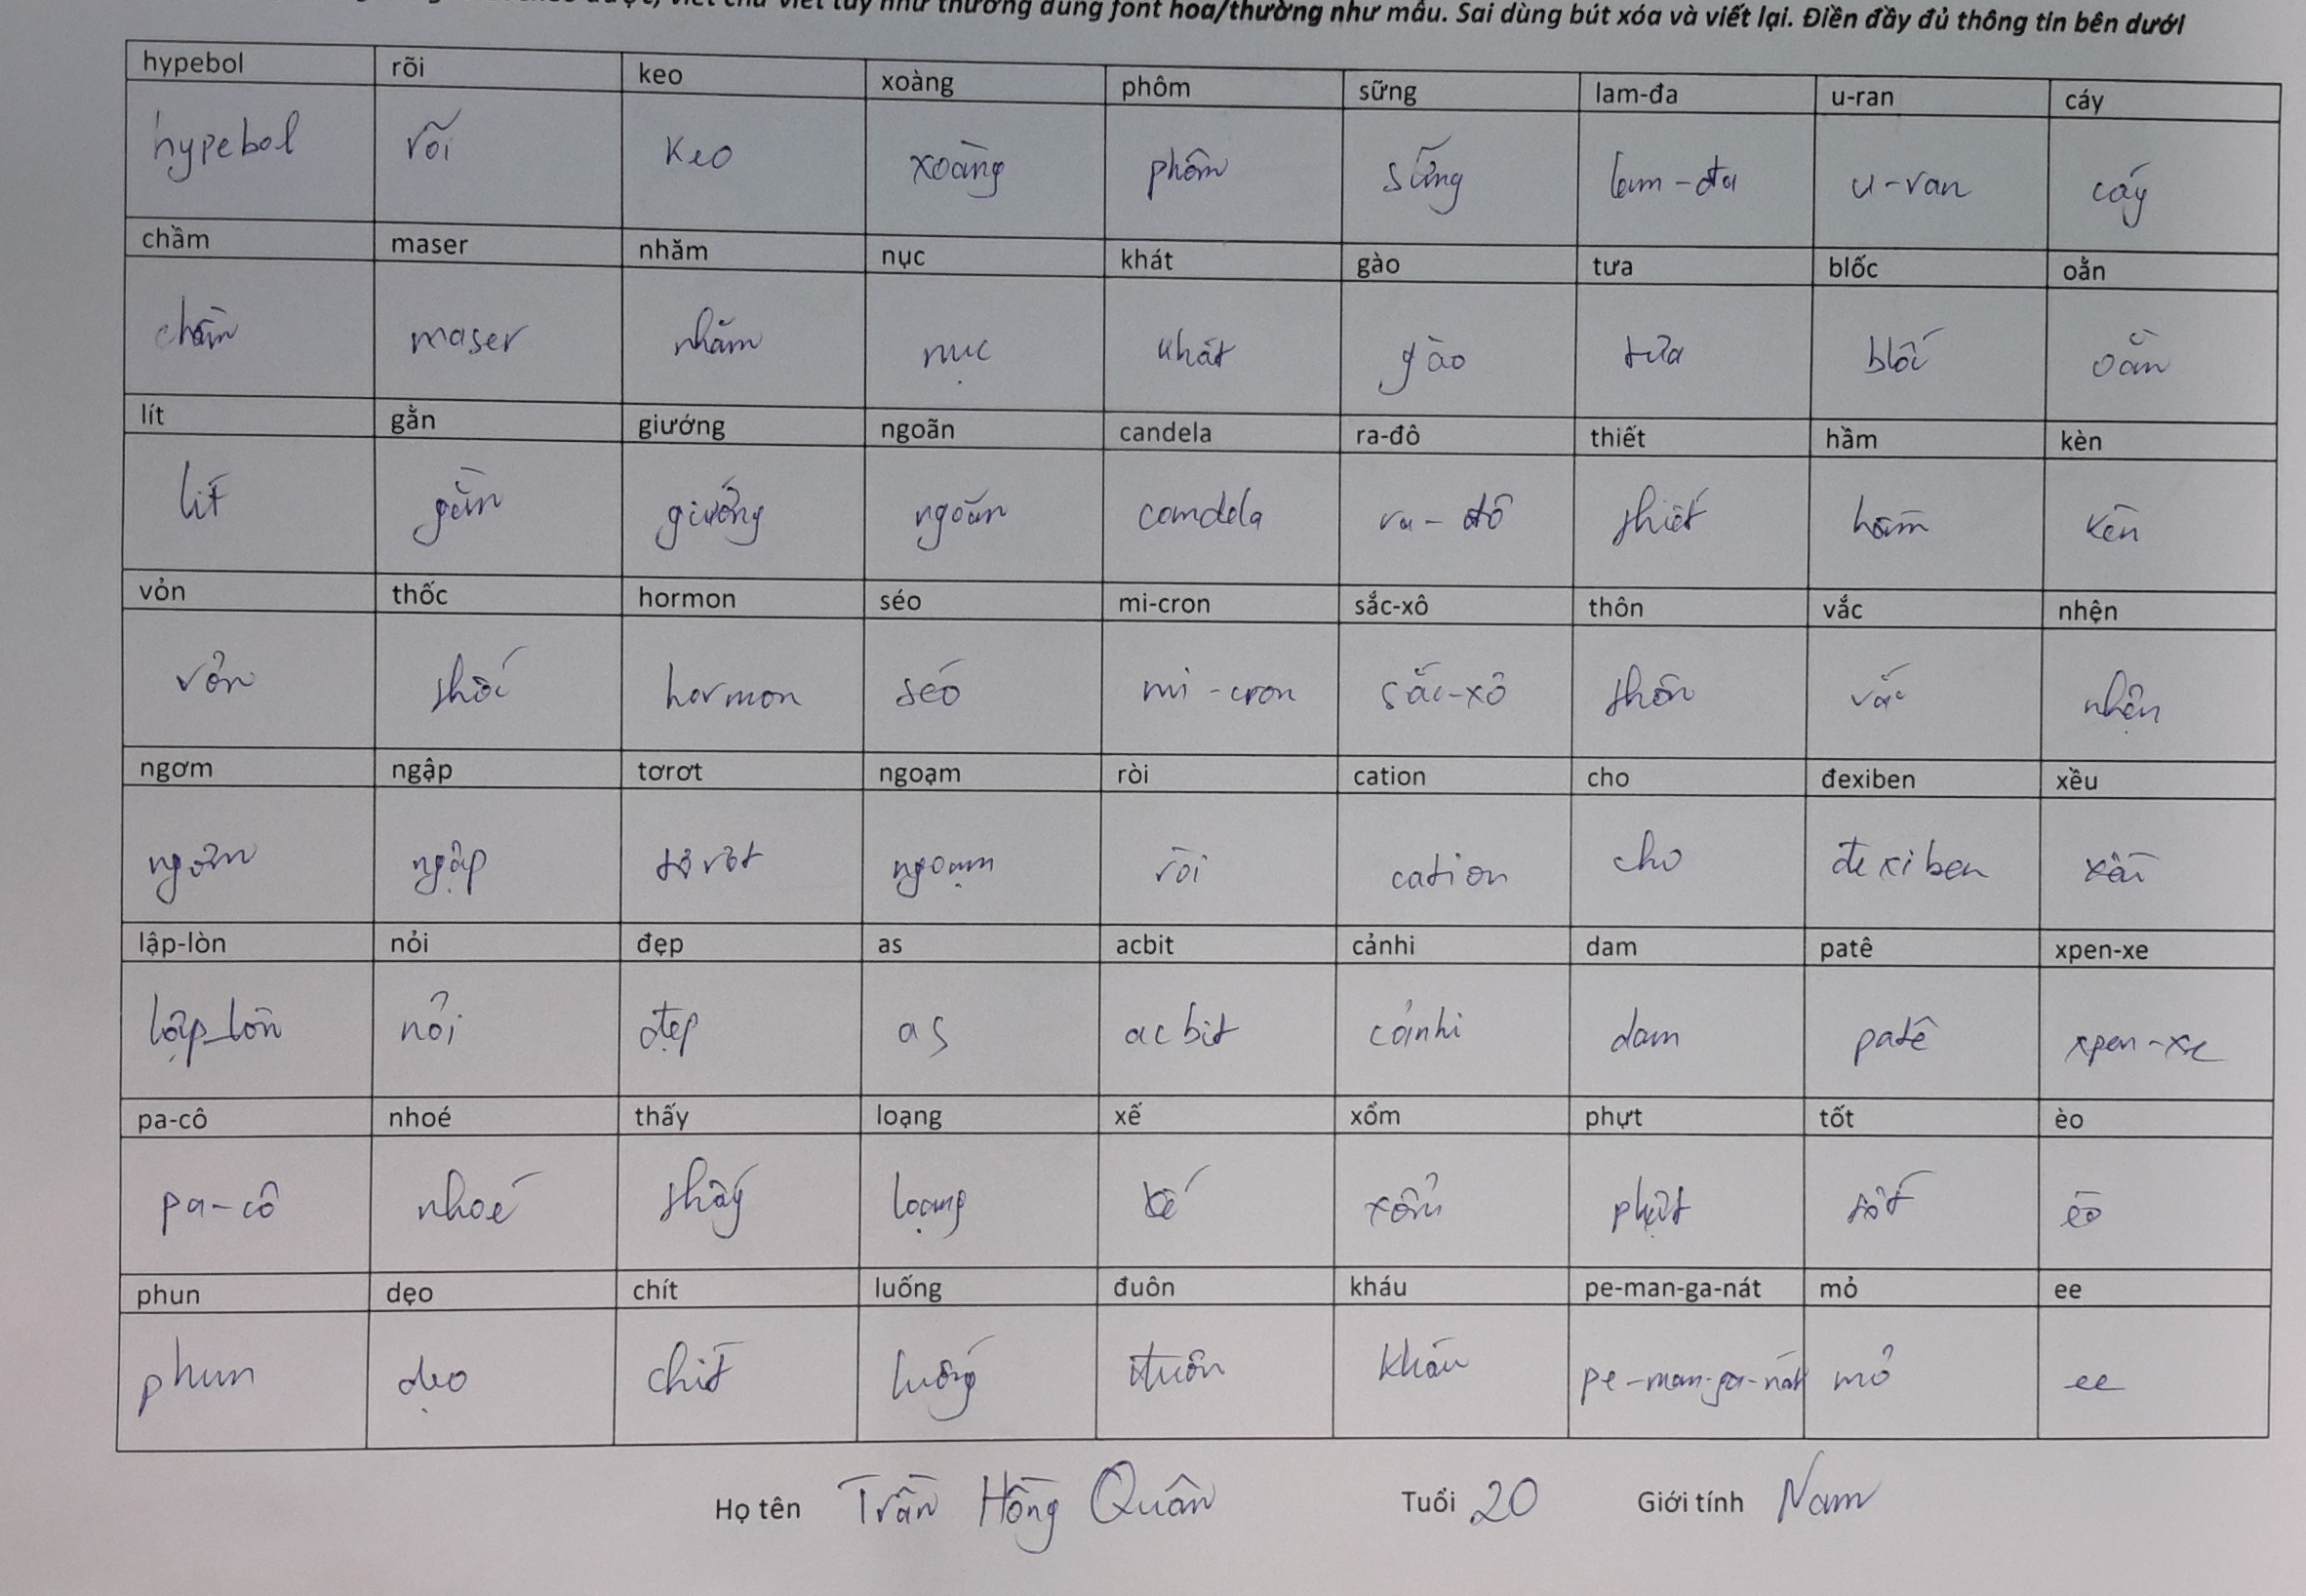 như thường dùng font hoa/thường như mẫu. Sai dùng bút xóa và viết lại. Điền đầy đủ thông tin bên dưới
hypebol rõi keo xoàng phôm sững lam-đa u-ran cáy
hypebol rõi keo xoàng phôm sững lam-đa u-ran cáy
chầm maser nhăm nục khát gào tưa blốc oằn
chầm maser nhăm nục khát gào tưa blốc oằn
lít gằn giướng ngoãn candela ra-đô thiết hầm kèn
lít gằn giướng ngoãn candela ra-đô thiết hầm kèn
vỏn thốc hormon séo mi-cron sắc-xô thôn vắc nhện
vỏn thốc hormon séo mi-cron sắc-xô thôn vắc nhện
ngơm ngập tơrơt ngoạm ròi cation cho đexiben xều
ngơm ngập tơrơt ngoạm ròi cation cho đexiben xều
lập-lòn nỏi đẹp as acbit cảnhi dam patê xpen-xe
lập-lòn nỏi đẹp as acbit cảnhi dam patê xpen-xe
pa-cô nhoé thấy loạng xế xổm phựt tốt èo
pa-cô nhoé thấy loạng xế xổm phựt tốt èo
phun dẹo chít luống đuôn kháu pe-man-ga-nát mỏ ee
phun dẹo chít luống đuôn kháu pe-man-ga-nát mỏ ee
Họ tên Trần Hồng Quân Tuổi 20 Giới tính Nam